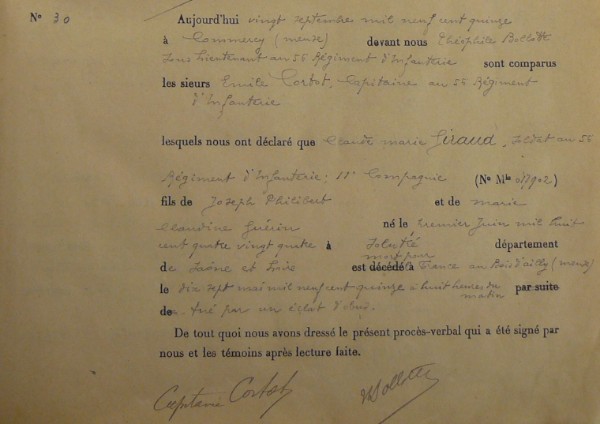 N° 30
Aujourd'hui vingt septembre mil neuf cent quinze
à Commercy (meuse) devant nous Théophile Bollotte
sous lieutenant au 56 Régiment d'Infanterie sont comparus
les sieurs Emile Cortot, Capitaine au 56 Régiment
d'Infanterie
lesquels nous ont déclaré que Claude marie Giraud, soldat au 56
Régiment d'Infanterie; 11e Compagnie (No Mle
fils de Joseph Philibert et de marie
Claudine Guérin né le premier Juin mil huit
cent quatre vingt quatre à département
mort pour
de Saône et Loire est décédé à la France au Bois d'ailly (meuse)
le dix sept mai mil neuf cent quinze à huit heures du
matin par suite
de tué par un éclat d'obus.
De tout quoi nous avons dressé le présent procès-verbal qui a été signé par
nous et les témoins après lecture faite.
Capitaine Cortot